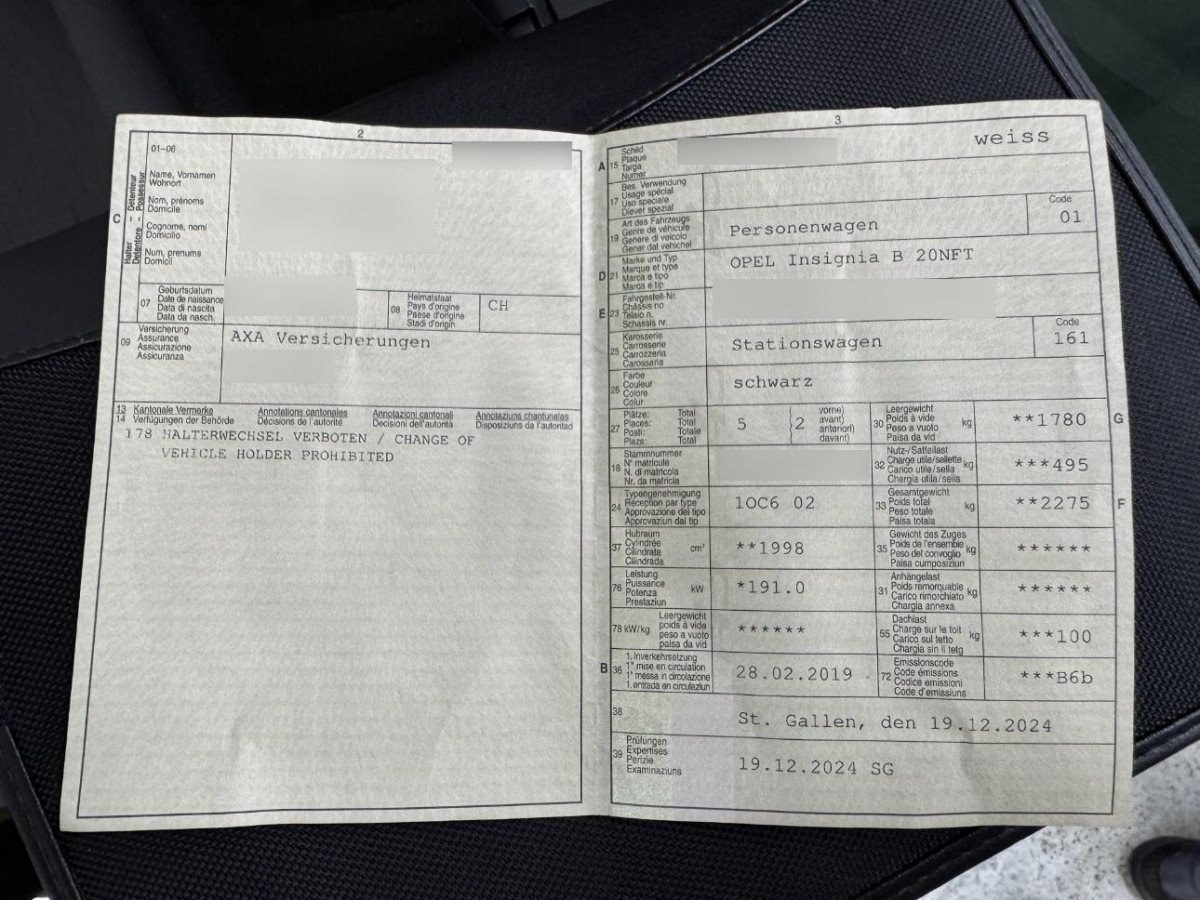 2
01-06
C
Halter – Détenteur
Detentore – Possessur
Name, Vornamen
Wohnort
Nom, prénoms
Domicile
Cognome, nomi
Domicilio
Num, prenums
Domicil
07
Geburtsdatum
Date de naissance
Data di nascita
Data da nasch.
08
Heimatstaat
Pays d'origine
Paese d'origine
Stadi d'origin
CH
09
Versicherung
Assurance
Assicurazione
Assicuranza
AXA Versicherungen
13 Kantonale Vermerke Annotations cantonales Annotazioni cantonali Annotaziuns chantunalas
14 Verfügungen der Behörde Décisions de l'autorité Decisioni dell'autorità Disposiziuns da l'autoritad
178 HALTERWECHSEL VERBOTEN / CHANGE OF
VEHICLE HOLDER PROHIBITED
3
A 15
Schild
Plaque
Targa
Numer
weiss
17
Bes. Verwendung
Usage spécial
Uso speciale
Diever spezial
19
Art des Fahrzeugs
Genre de véhicule
Genere di veicolo
Gener dal vehichel
Personenwagen
Code
01
D 21
Marke und Typ
Marque et type
Marca e tipo
Marca e tip
OPEL Insignia B 20NFT
E 23
Fahrgestell-Nr.
Châssis no
Telaio n.
Schassis nr.
25
Karosserie
Carrosserie
Carrozzeria
Carossaria
Stationswagen
Code
161
26
Farbe
Couleur
Colore
Colur
schwarz
27
Plätze: Total
Places: Total
Posti: Totale
Plazs: Total
5
2
vorne)
avant)
anteriori)
davant)
30
Leergewicht
Poids à vide
Peso a vuoto
Paisa da vid
kg
**1780
G
18
Stammnummer
N° matricule
N. di matricola
Nr. da matricla
32
Nutz-/Sattellast
Charge utile/sellette
Carico utile/sella
Chargia utila/sella
kg
***495
24
Typengenehmigung
Réception par type
Approvazione del tipo
Approvaziun dal tip
1OC6 02
33
Gesamtgewicht
Poids total
Peso totale
Paisa totala
kg
**2275
F
37
Hubraum
Cylindrée
Cilindrata
Cilindrada
cm³
**1998
35
Gewicht des Zuges
Poids de l'ensemble
Peso del convoglio
Paisa cumposiziun
kg
******
76
Leistung
Puissance
Potenza
Prestaziun
kW
*191.0
31
Anhängelast
Poids remorquable
Carico rimorchiato
Chargia annexa
kg
******
78 kW/kg
Leergewicht
poids à vide
peso a vuoto
paisa da vid
******
55
Dachlast
Charge sur le toit
Carico sul tetto
Chargia sin il tetg
kg
***100
B 36
1. Inverkehrsetzung
1re mise en circulation
1a messa in circolazione
1. entrada en circulaziun
28.02.2019
72
Emissionscode
Code émissions
Codice emissioni
Code d'emissiuns
***B6b
38
St. Gallen, den 19.12.2024
39
Prüfungen
Expertises
Perizie
Examinaziuns
19.12.2024 SG